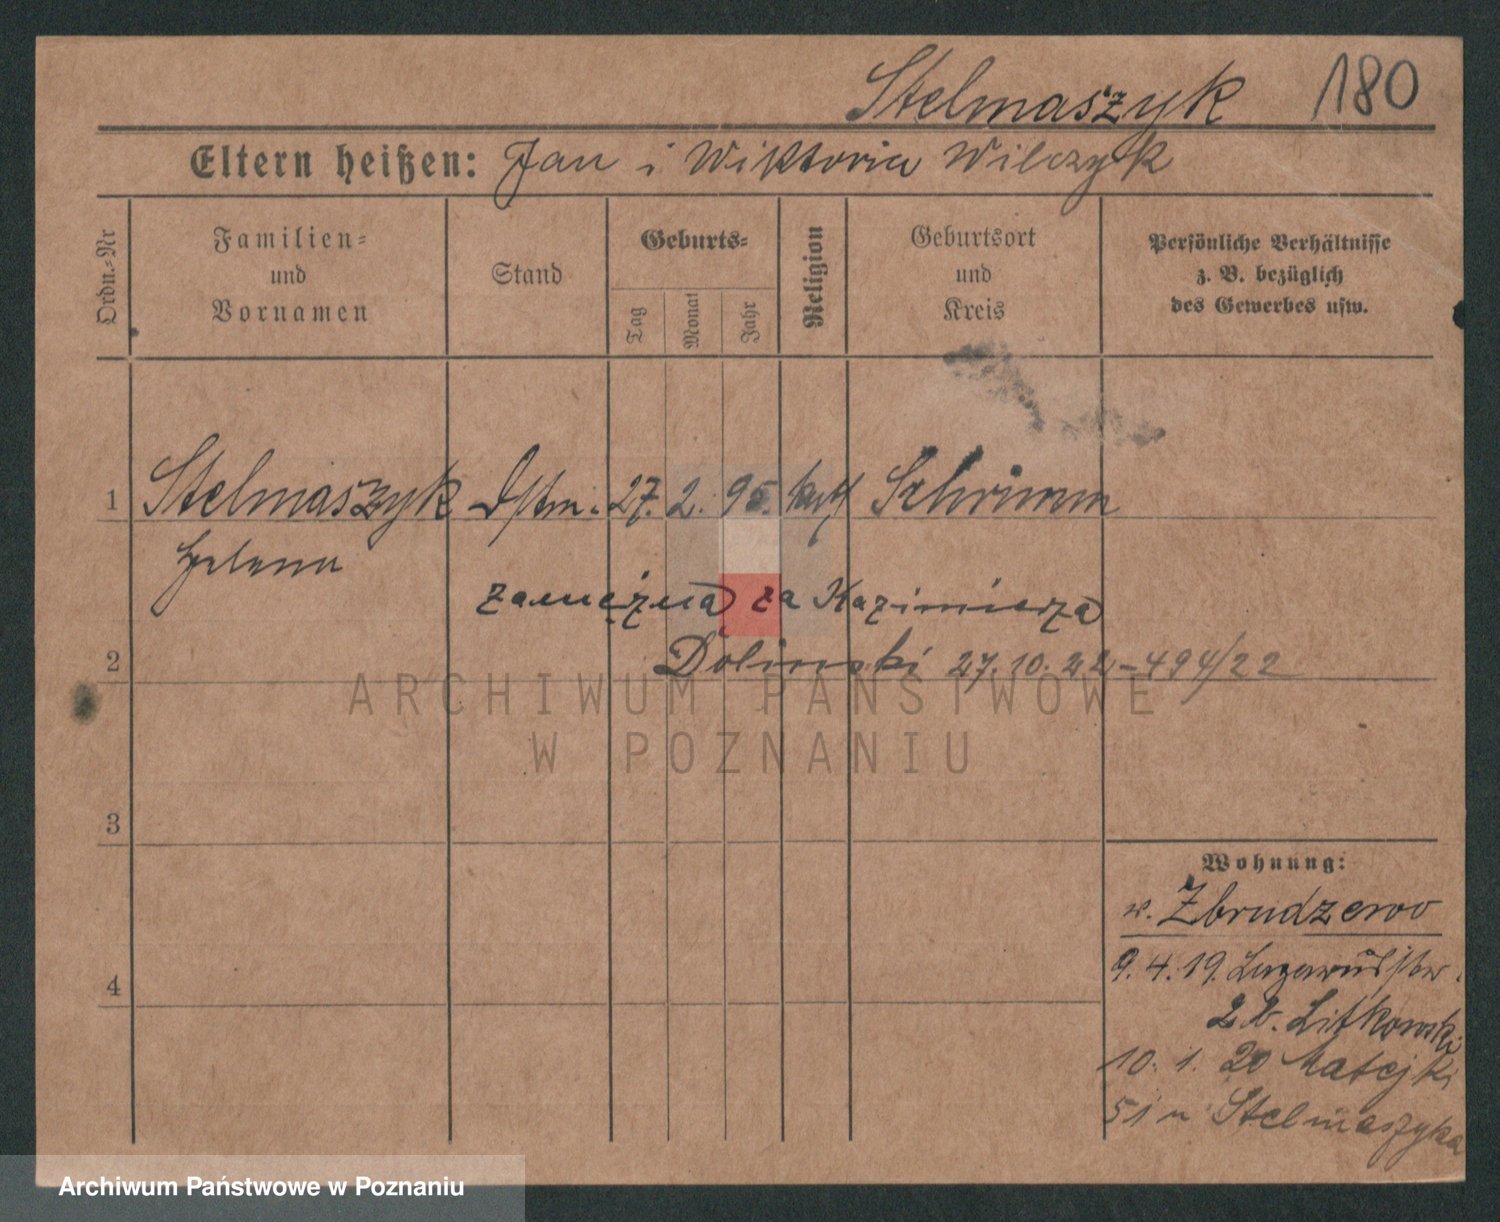 Stelmaszyk 180
Eltern heißen: Jan i Wiktoria Wilczyk
Ordn.-Nr
Familien-
und
Vornamen
Stand
Geburts-
Tag
Monat
Jahr
Religion
Geburtsort
und
Kreis
Persönliche Verhältnisse
z. B. bezüglich
des Gewerbes usw.
1 Stelmaszyk 27. 2. 95. kath Schrimm
Helena
zamężna za Kazimierza
2 Doliński 27.10.22 - 494/22
ARCHIWUM PAŃSTWOWE
W POZNANIU
3
Wohnung:
w. Zbrudzewo
4
9. 4. 19.
2 b. Litkowski
10. 1. 20 Matejki
51 u Stelmaszyka
Archiwum Państwowe w Poznaniu